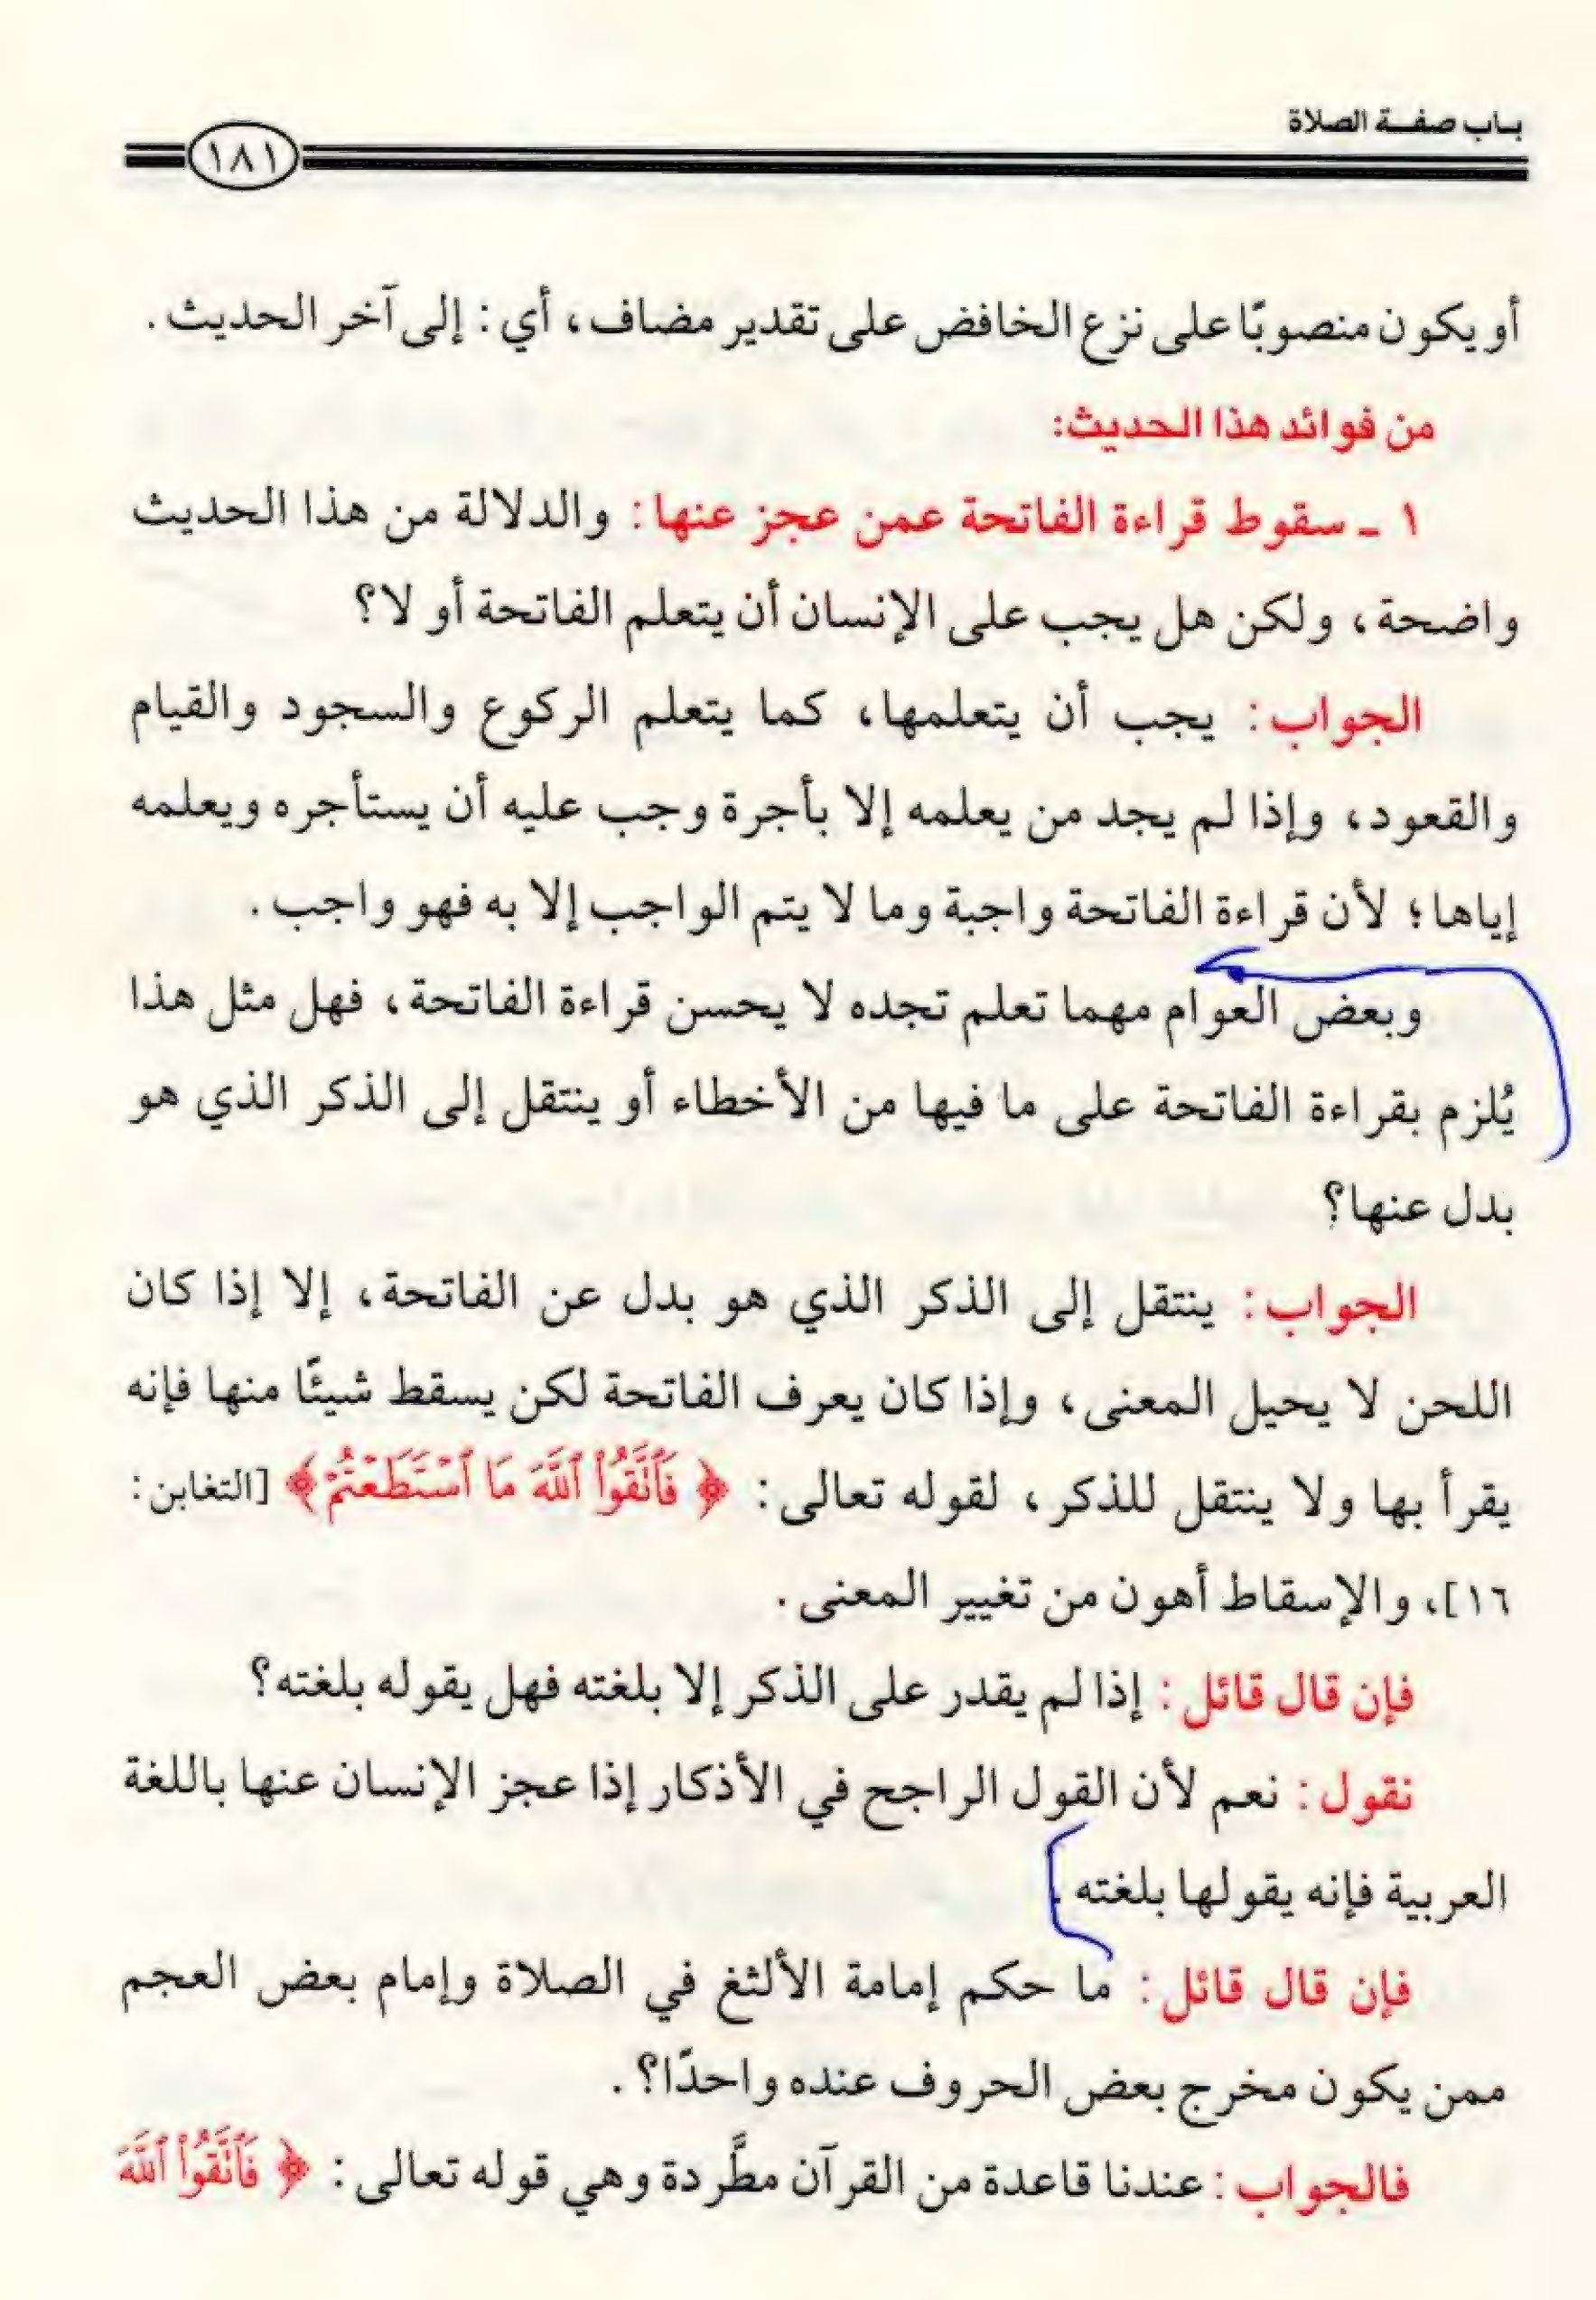 باب صفة الصلاة
١٨١
أو يكون منصوبًا على نزع الخافض على تقدير مضاف، أي: إلى آخر الحديث.
من فوائد هذا الحديث:
١ ـ سقوط قراءة الفاتحة عمن عجز عنها: والدلالة من هذا الحديث
واضحة، ولكن هل يجب على الإنسان أن يتعلم الفاتحة أو لا؟
الجواب: يجب أن يتعلمها، كما يتعلم الركوع والسجود والقيام
والقعود، وإذا لم يجد من يعلمه إلا بأجرة وجب عليه أن يستأجره ويعلمه
إياها؛ لأن قراءة الفاتحة واجبة وما لا يتم الواجب إلا به فهو واجب.
وبعض العوام مهما تعلم تجده لا يحسن قراءة الفاتحة، فهل مثل هذا
يُلزم بقراءة الفاتحة على ما فيها من الأخطاء أو ينتقل إلى الذكر الذي هو
بدل عنها؟
الجواب: ينتقل إلى الذكر الذي هو بدل عن الفاتحة، إلا إذا كان
اللحن لا يحيل المعنى، وإذا كان يعرف الفاتحة لكن يسقط شيئًا منها فإنه
يقرأ بها ولا ينتقل للذكر، لقوله تعالى: ﴿فَٱتَّقُوا۟ ٱللَّهَ مَا ٱسْتَطَعْتُمْ﴾ [التغابن:
١٦]، والإسقاط أهون من تغيير المعنى.
فإن قال قائل: إذا لم يقدر على الذكر إلا بلغته فهل يقوله بلغته؟
نقول: نعم لأن القول الراجح في الأذكار إذا عجز الإنسان عنها باللغة
العربية فإنه يقولها بلغته.
فإن قال قائل: ما حكم إمامة الألثغ في الصلاة وإمام بعض العجم
ممن يكون مخرج بعض الحروف عنده واحدًا؟.
فالجواب: عندنا قاعدة من القرآن مطَّردة وهي قوله تعالى: ﴿فَٱتَّقُوا۟ ٱللَّهَ